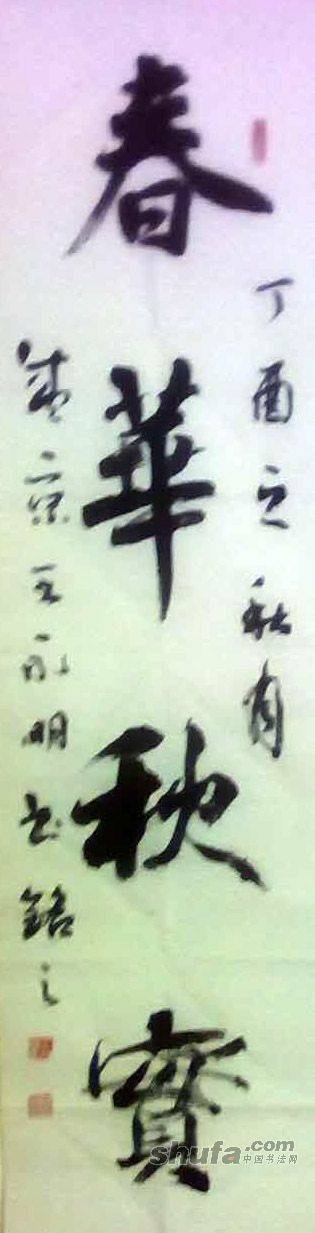 丁酉之秋月
春華秋實
京王永明书銘之
shufa.com
中国书法网